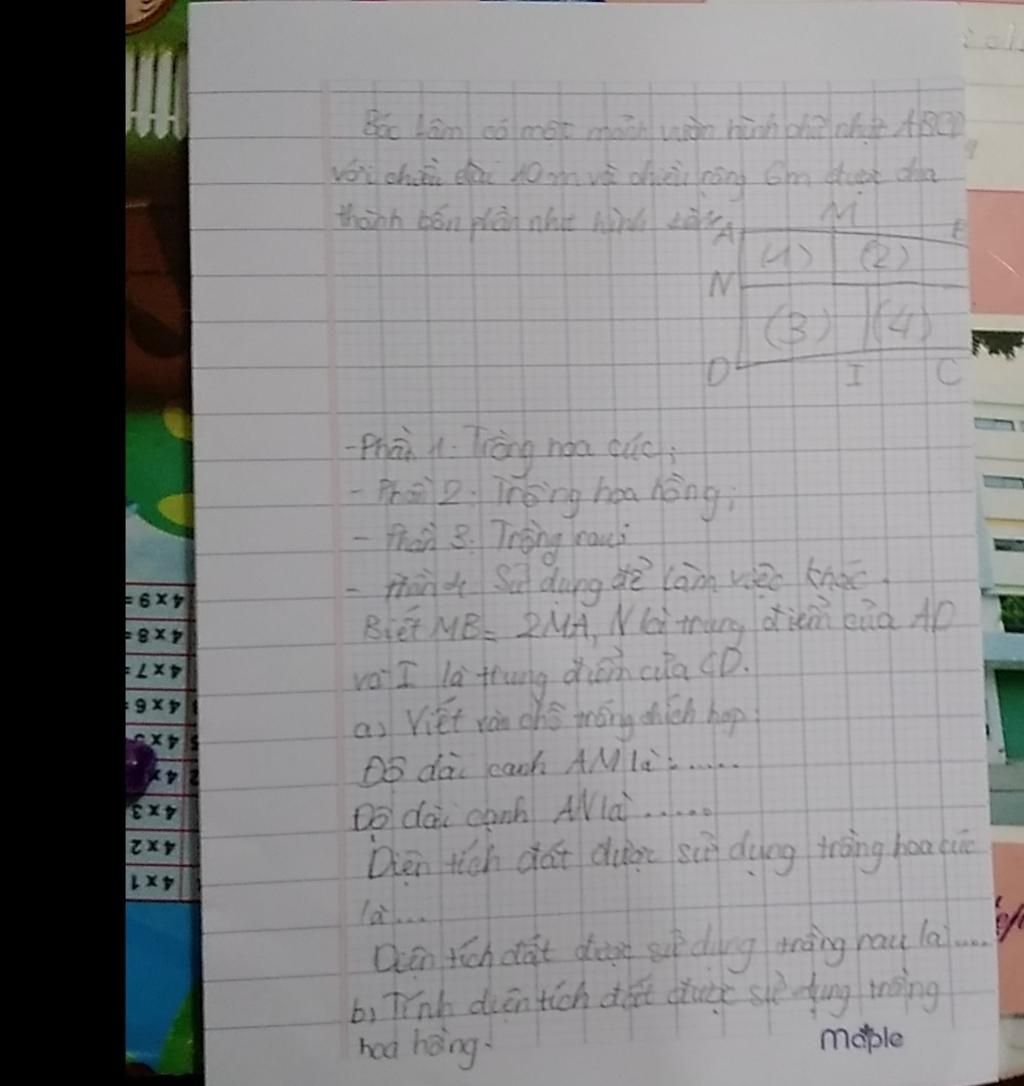 Bác Lâm có một mảnh vườn hình chữ nhật ABCD
với chiều dài 10m và chiều rộng 6m được chia
thành bốn phần như hình sau:
A M B
(1) (2)
N
(3) (4)
D I C
- Phần 1: Trồng hoa cúc;
- Phần 2: Trồng hoa hồng;
- Phần 3: Trồng rau;
- Phần 4: Sử dụng để làm việc khác.
Biết MB = 2MA, N là trung điểm của AD
và I là trung điểm của CD.
a) Viết vào chỗ trống thích hợp:
Độ dài cạnh AM là: .....
Độ dài cạnh AN là .....
Diện tích đất được sử dụng trồng hoa cúc
là...
Diện tích đất được sử dụng trồng rau là ....
b) Tính diện tích đất được sử dụng trồng
hoa hồng.
maple
4 x 9 =
4 x 8 =
4 x 7 =
4 x 6 =
4 x 5
4 x
4 x 3
4 x 2
4 x 1